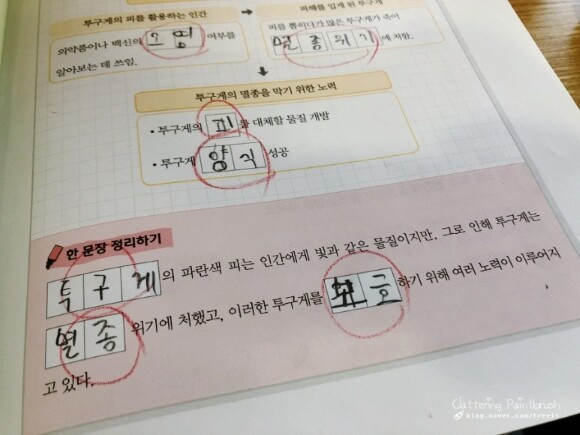 투구게의 피를 활용하는 인간
의약품이나 백신의 오염 여부를
알아보는 데 쓰임.
피해를 입게 된 투구게
피를 뽑히다가 많은 투구게가 죽어
멸종위기에 처함.
투구게의 멸종을 막기 위한 노력
• 투구게의 피를 대체할 물질 개발
• 투구게 양식 성공
한 문장 정리하기
투구게의 파란색 피는 인간에게 빛과 같은 물질이지만, 그로 인해 투구게는
멸종 위기에 처했고, 이러한 투구게를 보호하기 위해 여러 노력이 이루어지
고 있다.
Clattering Paintbrush